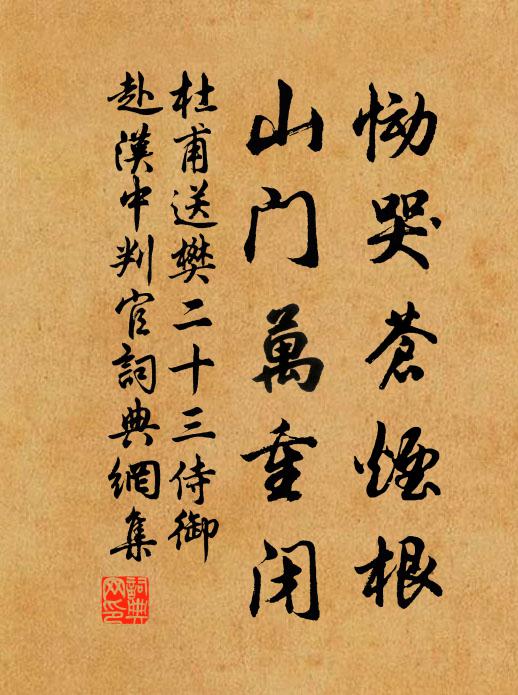 慟哭蒼煙根
山門萬重閉
杜甫送樊二十三侍御
赴漢中判官詞典網集
詞典網印